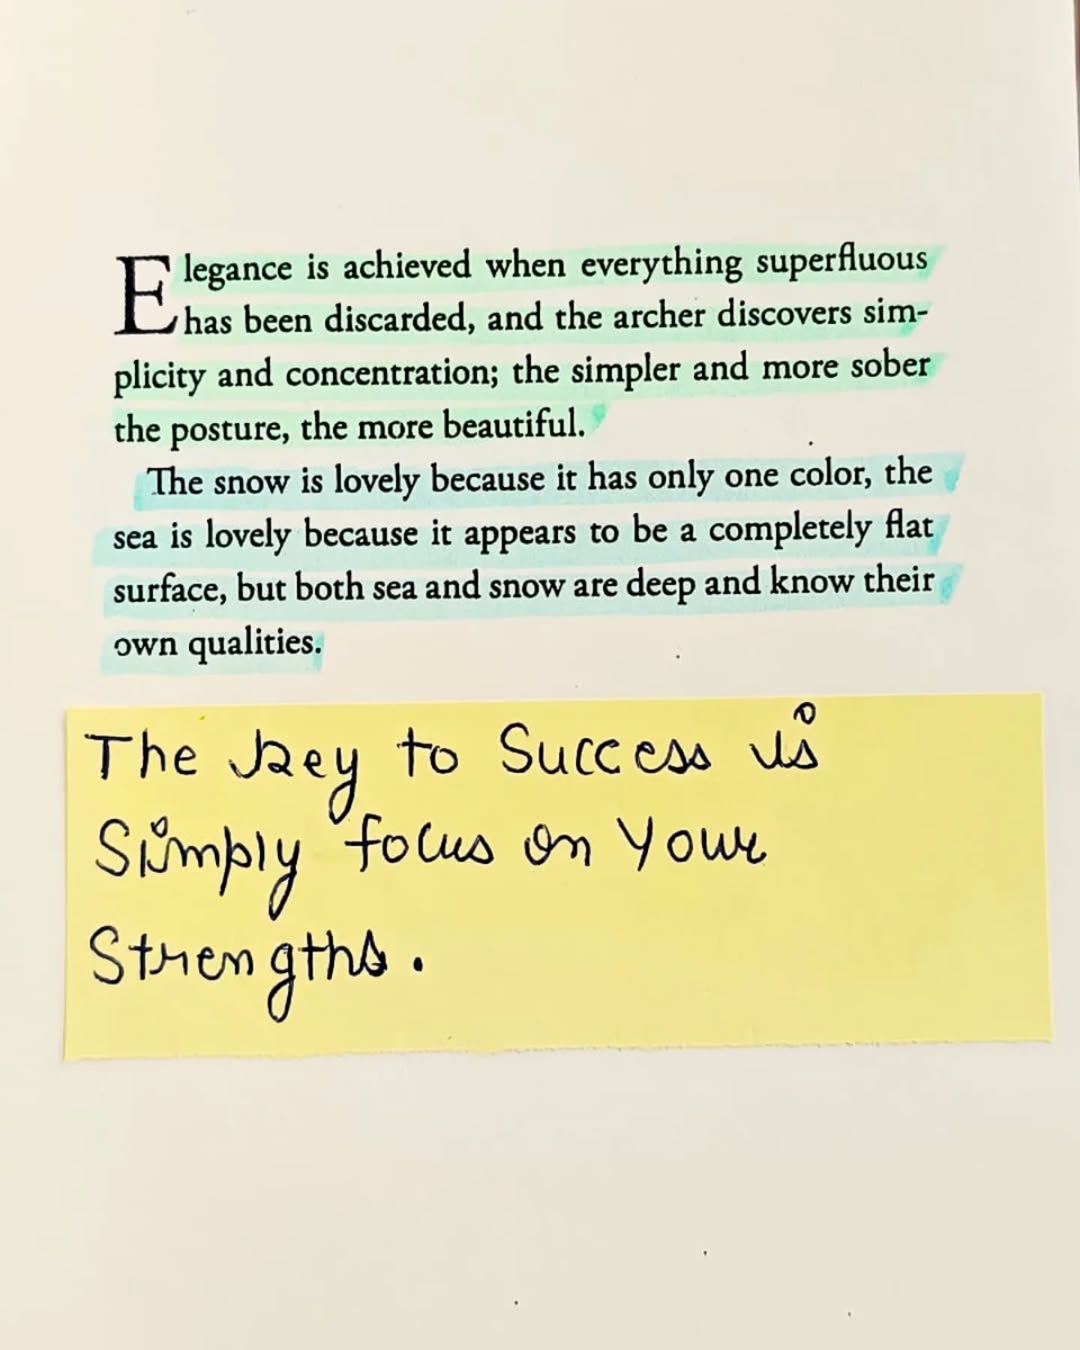 Elegance is achieved when everything superfluous
has been discarded, and the archer discovers sim-
plicity and concentration; the simpler and more sober
the posture, the more beautiful.
The snow is lovely because it has only one color, the
sea is lovely because it appears to be a completely flat
surface, but both sea and snow are deep and know their
own qualities.
The key to Success is
Simply focus on Your
Strengths.